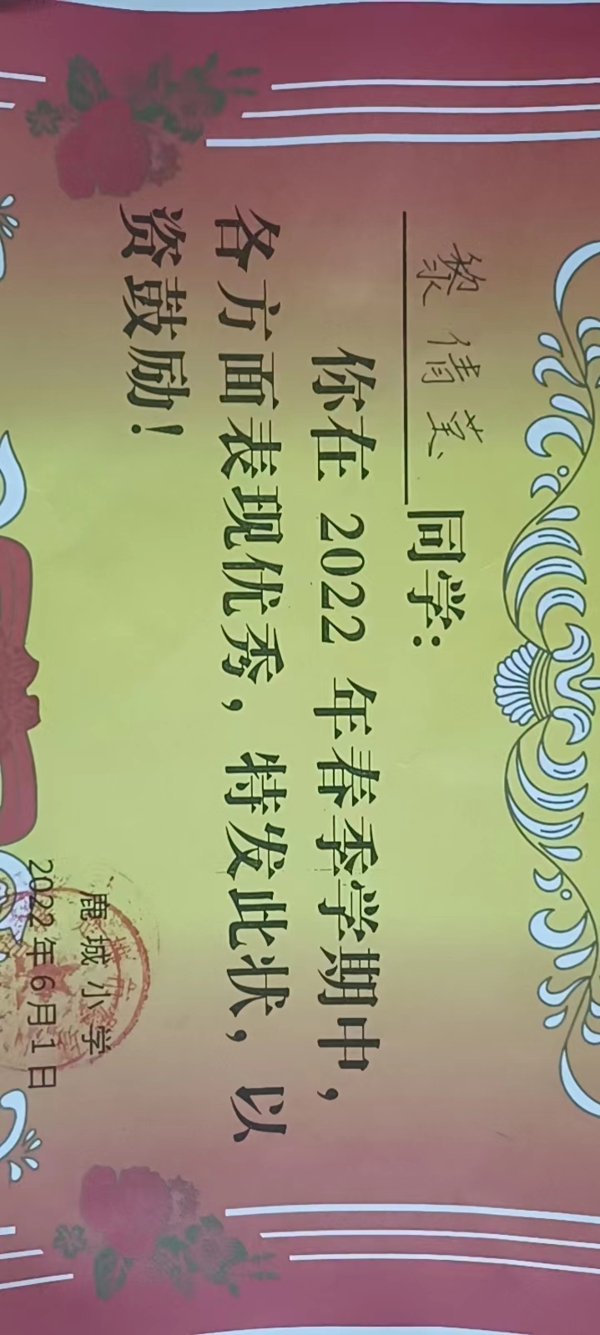 黎倩莹同学：
你在 2022 年春季学期中，
各方面表现优秀，特发此状，以
资鼓励！
鹿城小学
2022年6月1日